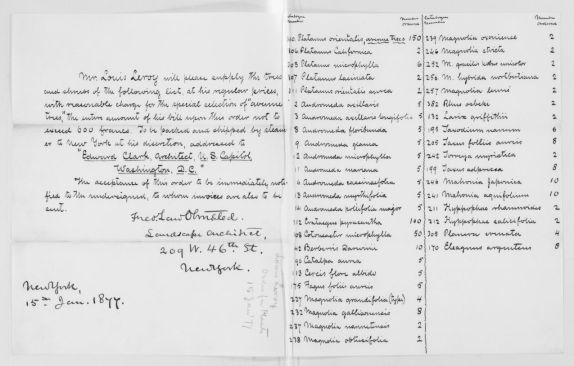 Mr. Louis Leroy will please supply the trees
and shrubs of the following list, at his regular prices,
with reasonable charge for the special selection of "avenue
trees," the entire amount of his bill upon this order not to
exceed 600 francs. To be packed and shipped by steam-
er to New York at his discretion, addressed to
"Edward Clark, Architect, U.S. Capitol,
Washington, D.C."
The acceptance of this order to be immediately noti-
fied to the undersigned, to whom invoices are also to be
sent.
Fred. Law Olmsted.
Landscape Architect,
209 W. 46th St.
New York.
New York,
15th Jan. 1877.
Catalogue Number
Number Ordered
Platanus orientalis, avenue trees 150
Platanus Californica 2
Platanus microphylla 6
Platanus laciniata 2
Platanus orientalis aurea 2
Andromeda axillaris 5
3 Andromeda axillaris longifolia 5
8 Andromeda floribunda 5
9 Andromeda glauca 5
12 Andromeda microphylla 5
11 Andromeda mariana 5
Andromeda cassinefolia 5
13 Andromeda myrtifolia 5
14 Andromeda polifolia major 5
112 Crataegus pyracantha 100
108 Cotoneaster microphylla 50
42 Berberis Darwinii 10
90 Catalpa aurea 5
113 Cercis flore albido 5
175 Fagus foliis aureis 5
227 Magnolia grandifolia (type) 4
232 Magnolia gallisoniensis 8
237 Magnolia nannetensis 2
238 Magnolia obtusifolia 2
Catalogue Number
Number Ordered
239 Magnolia oxoniense 2
246 Magnolia stricta 2
252 M. gracilis kobus unicolor 2
256 M. hybrida norbertiana 2
257 Magnolia lennei 2
382 Rhus osbeckii 2
132 Larix griffithii 2
195 Taxodium nanum 6
205 Taxus foliis aureis 8
242 Torreya myristica 2
199 Taxus adpressa 8
246 Mahonia japonica 10
241 Mahonia aquifolium 10
211 Hyppophae rhamnoides 2
212 Hyppophae salicifolia 2
305 Planera crenata 4
170 Eleagnus argenteus 8
Louis Leroy
Order for Plants
15 Jan 77